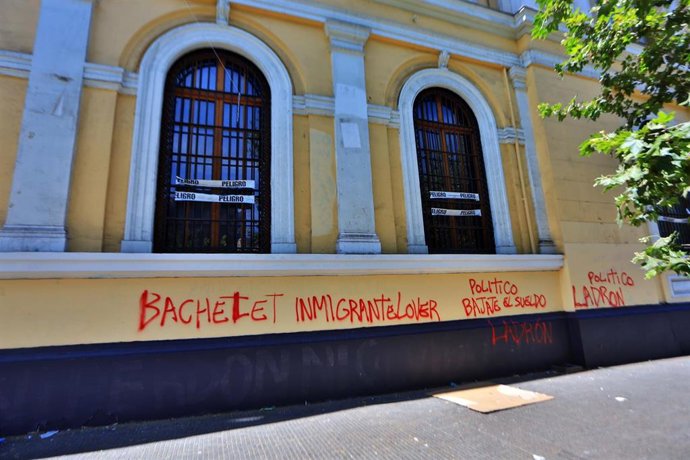 PELIGRO PELIGRO
PELIGRO PELIGRO
PELIGRO PEL
PELIGRO
BACHELET INMIGRANTE LOVER
POLITICO
BAJATE EL SUELDO
LADRÓN
POLITICO
LADRÓN